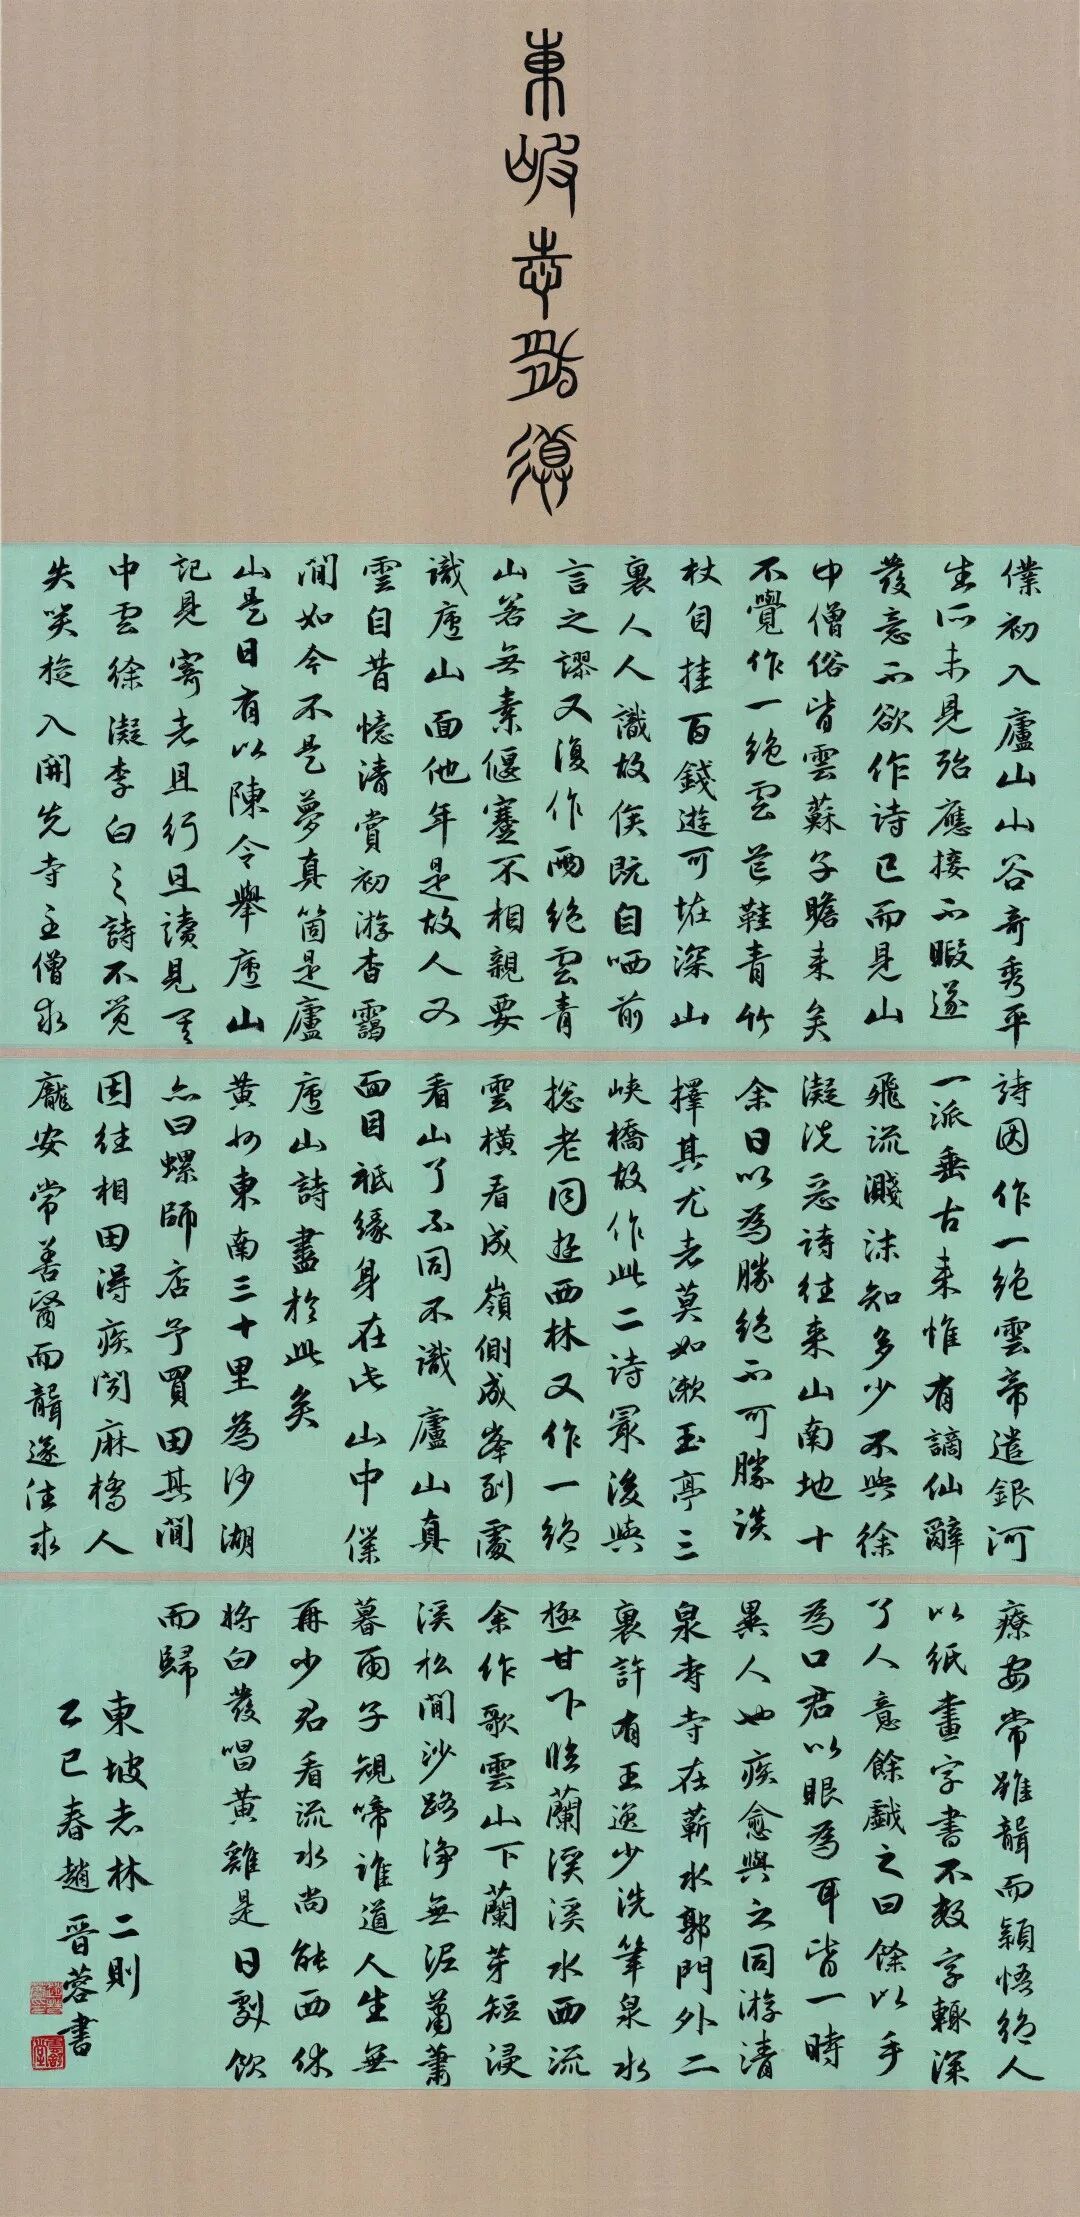 東坡志林導
僕初入廬山山谷奇秀平
生所未見殆應接不暇遂
發意不欲作詩已而見山
中僧俗皆雲蘇子瞻来矣
不覺作一絶雲芒鞋青竹
杖自挂百錢遊可在深山
裏人人識故侯既自哂前
言之謬又復作兩絶雲青
山若無素偃蹇不相親要
識廬山面他年是故人又
雲自昔憶清賞初游杳靄
間如今不是夢真箇是廬
山是日有以陳令舉廬山
記見寄者且行且讀見其
中雲徐凝李白之詩不覚
失笑旋入開先寺主僧求
詩因作一絶雲帝遣銀河
一派垂古来惟有謫仙辭
飛流濺沫知多少不與徐
凝洗惡詩往来山南地十
余日以為勝絶不可勝談
擇其尤者莫如漱玉亭三
峽橋故作此二詩最後與
摠老同遊西林又作一絶
雲橫看成嶺側成峯到處
看山了不同不識廬山真
面目衹緣身在此山中僕
廬山詩盡於此矣
黃州東南三十里為沙湖
亦曰螺師店予買田其間
因往相田得疾聞麻橋人
龐安常善醫而聾遂往求
療安常雖聾而穎悟絶人
以紙畫字書不數字輒深
了人意餘戲之曰餘以手
為口君以眼為耳皆一時
異人也疾愈與之同游清
泉寺寺在蘄水郭門外二
裏許有王逸少洗筆泉水
極甘下臨蘭溪溪水西流
余作歌雲山下蘭芽短浸
溪松間沙路淨無泥蕭蕭
暮雨子規啼誰道人生無
再少君看流水尚能西休
將白發唱黃雞是日劇飲
而歸
東坡志林二則
乙巳春趙晉蓉書